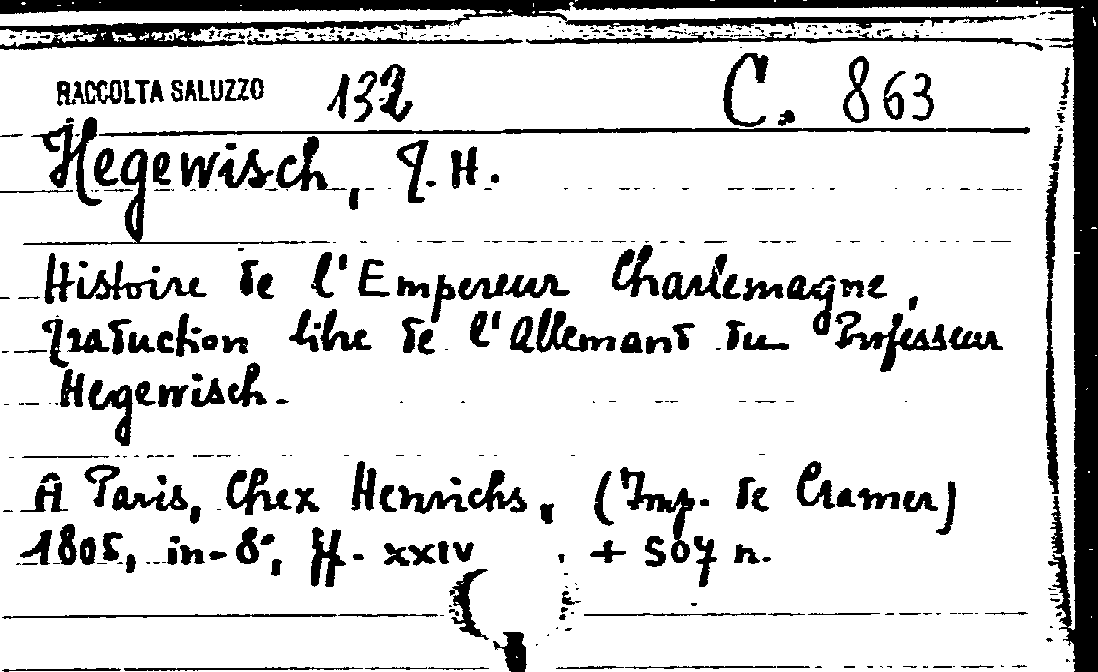 RACCOLTA SALUZZO 132 C. 863
Hegewisch, J. H.
Histoire de l'Empereur Charlemagne,
Traduction libre de l'Allemand du Professeur
Hegewisch.
A Paris, Chez Henrichs, (Imp. de Cramer)
1805, in-8°, ff. XXIV + 507 n.